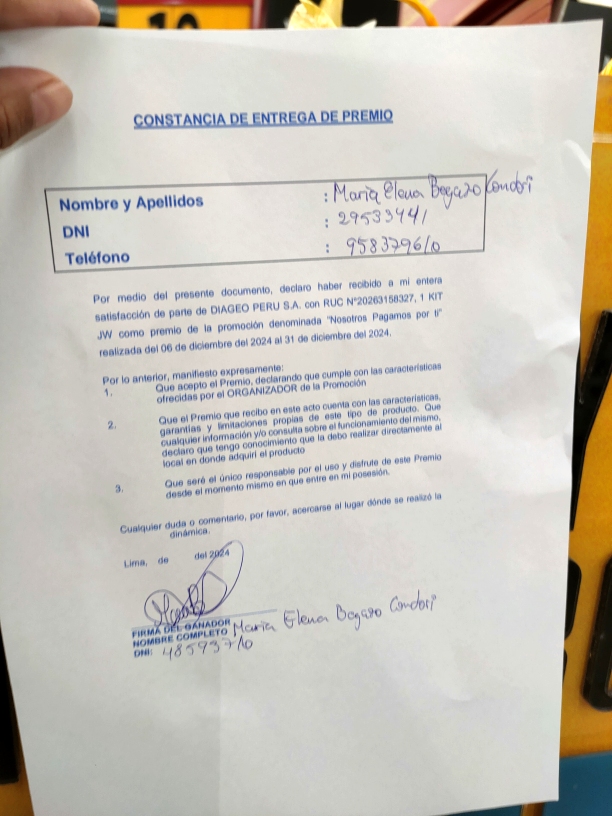 CONSTANCIA DE ENTREGA DE PREMIO
Nombre y Apellidos : Maria Elena Begazo Condori
DNI : 29533441
Teléfono : 958379610
Por medio del presente documento, declaro haber recibido a mi entera
satisfacción de parte de DIAGEO PERU S.A. con RUC N°20263158327, 1 KIT
JW como premio de la promoción denominada "Nosotros Pagamos por ti"
realizada del 06 de diciembre del 2024 al 31 de diciembre del 2024.
Por lo anterior, manifiesto expresamente:
1. Que acepto el Premio, declarando que cumple con las características
ofrecidas por el ORGANIZADOR de la Promoción
2. Que el Premio que recibo en este acto cuenta con las características,
garantías y limitaciones propias de este tipo de producto. Que
cualquier información y/o consulta sobre el funcionamiento del mismo,
declaro que tengo conocimiento que la debo realizar directamente al
local en donde adquirí el producto
3. Que seré el único responsable por el uso y disfrute de este Premio
desde el momento mismo en que entre en mi posesión.
Cualquier duda o comentario, por favor, acercarse al lugar dónde se realizó la
dinámica.
Lima, de del 2024
FIRMA DEL GANADOR
NOMBRE COMPLETO Maria Elena Begazo Condori
DNI: 48593710